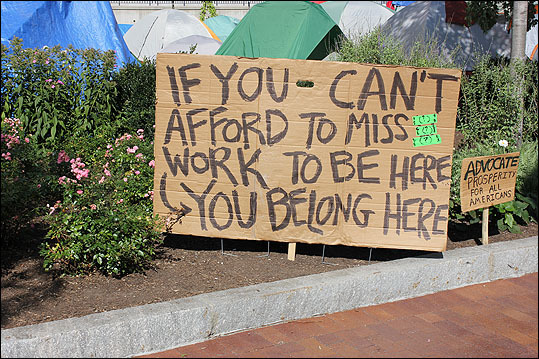 IF YOU CAN'T
AFFORD TO MISS
WORK TO BE HERE
YOU BELONG HERE
(!)
{!}
{?}
ADVOCATE
PROSPERITY
FOR ALL
AMERICANS